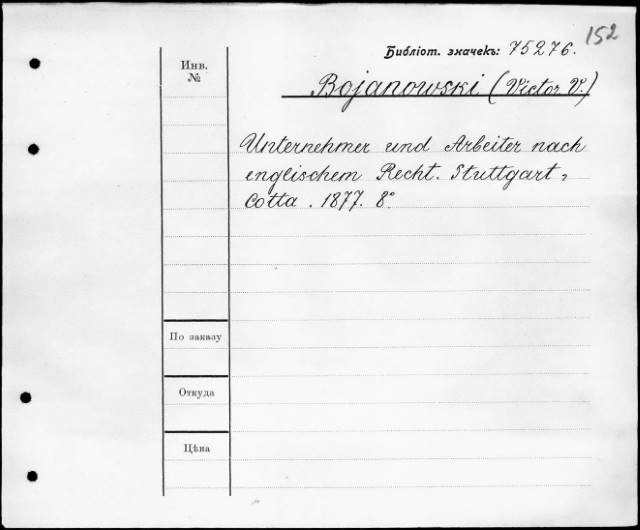 152
Библіот. значекъ: 75276.
Инв.
№
Bojanowski (Victor V.)
Unternehmer und Arbeiter nach
englischem Recht. Stuttgart,
Cotta. 1877. 8°
По заказу
Откуда
Цѣна